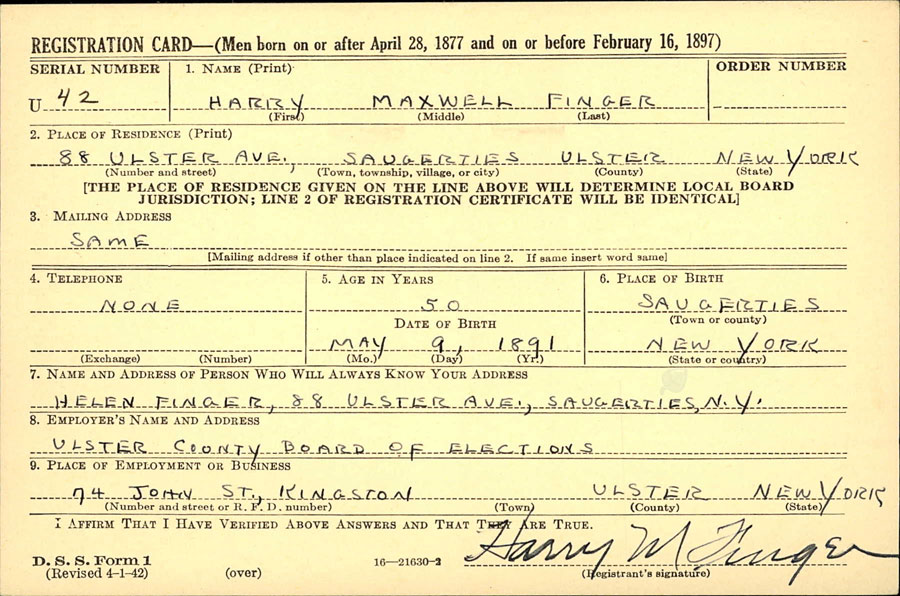 REGISTRATION CARD—(Men born on or after April 28, 1877 and on or before February 16, 1897)
SERIAL NUMBER 1. NAME (Print) ORDER NUMBER
U 42 HARRY MAXWELL FINGER
(First) (Middle) (Last)
2. PLACE OF RESIDENCE (Print)
88 ULSTER AVE., SAUGERTIES ULSTER NEW YORK
(Number and street) (Town, township, village, or city) (County) (State)
[THE PLACE OF RESIDENCE GIVEN ON THE LINE ABOVE WILL DETERMINE LOCAL BOARD
JURISDICTION; LINE 2 OF REGISTRATION CERTIFICATE WILL BE IDENTICAL]
3. MAILING ADDRESS
SAME
[Mailing address if other than place indicated on line 2. If same insert word same]
4. TELEPHONE 5. AGE IN YEARS 6. PLACE OF BIRTH
NONE 50 SAUGERTIES
(Town or county)
DATE OF BIRTH
MAY 9, 1891 NEW YORK
(Exchange) (Number) (Mo.) (Day) (Yr.) (State or country)
7. NAME AND ADDRESS OF PERSON WHO WILL ALWAYS KNOW YOUR ADDRESS
HELEN FINGER, 88 ULSTER AVE., SAUGERTIES, N.Y.
8. EMPLOYER'S NAME AND ADDRESS
ULSTER COUNTY BOARD OF ELECTIONS
9. PLACE OF EMPLOYMENT OR BUSINESS
74 JOHN ST., KINGSTON ULSTER NEW YORK
(Number and street or R. F. D. number) (Town) (County) (State)
I AFFIRM THAT I HAVE VERIFIED ABOVE ANSWERS AND THAT THEY ARE TRUE.
Harry M Finger
D. S. S. Form 1
(Revised 4-1-42) (over) 16—21630-2 (Registrant's signature)